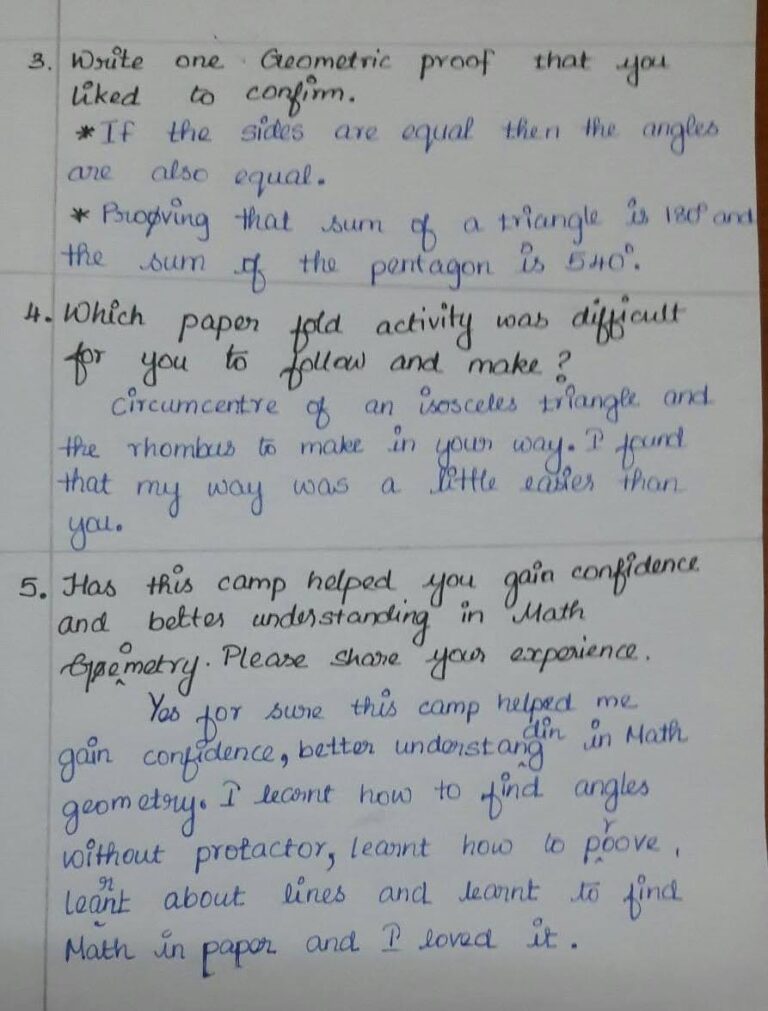 3. Write one Geometric proof that you
liked to confirm.
* If the sides are equal then the angles
are also equal.
* Prooving that sum of a triangle is 180° and
the sum of the pentagon is 540°.
4. Which paper fold activity was difficult
for you to follow and make?
Circumcentre of an isosceles triangle and
the rhombus to make in your way. I found
that my way was a little easier than
you.
5. Has this camp helped you gain confidence
and better understanding in Math
Geometry. Please share your experience.
Yes for sure this camp helped me
gain confidence, better understanding in Math
geometry. I learnt how to find angles
without protactor, learnt how to proove,
learnt about lines and learnt to find
Math in paper and I loved it.